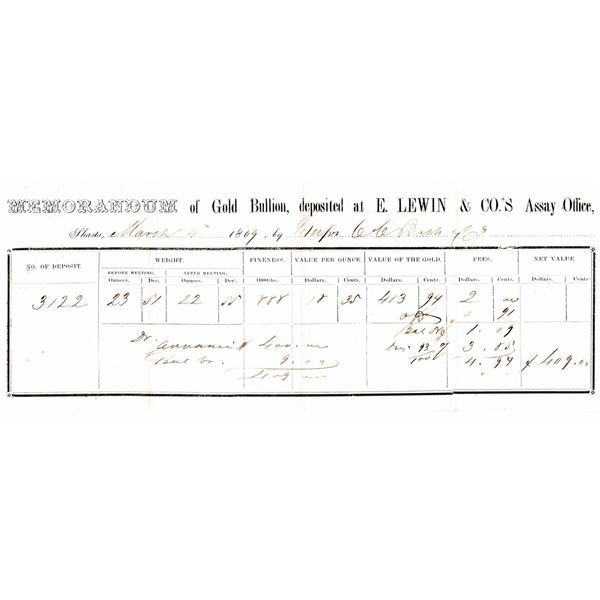 MEMORANDUM of Gold Bullion, deposited at E. LEWIN & CO.'S Assay Office,
Shasta, March 4th 1869, by C. C. Bush & Co
NO. OF DEPOSIT. WEIGHT. FINENESS. VALUE PER OUNCE. VALUE OF THE GOLD. FEES. NET VALUE.
BEFORE MELTING. AFTER MELTING.
Ounces. Dec. Ounces. Dec. 1000ths. Dollars. Cents. Dollars. Cents. Dollars. Cents. Dollars. Cents.
3122 23 51 22 55 888 18 35 413 94 2
91
Bal 1. 09
Dr 400.
93 3. 85
Bal 9.
100 4. 94 $ 409.
409